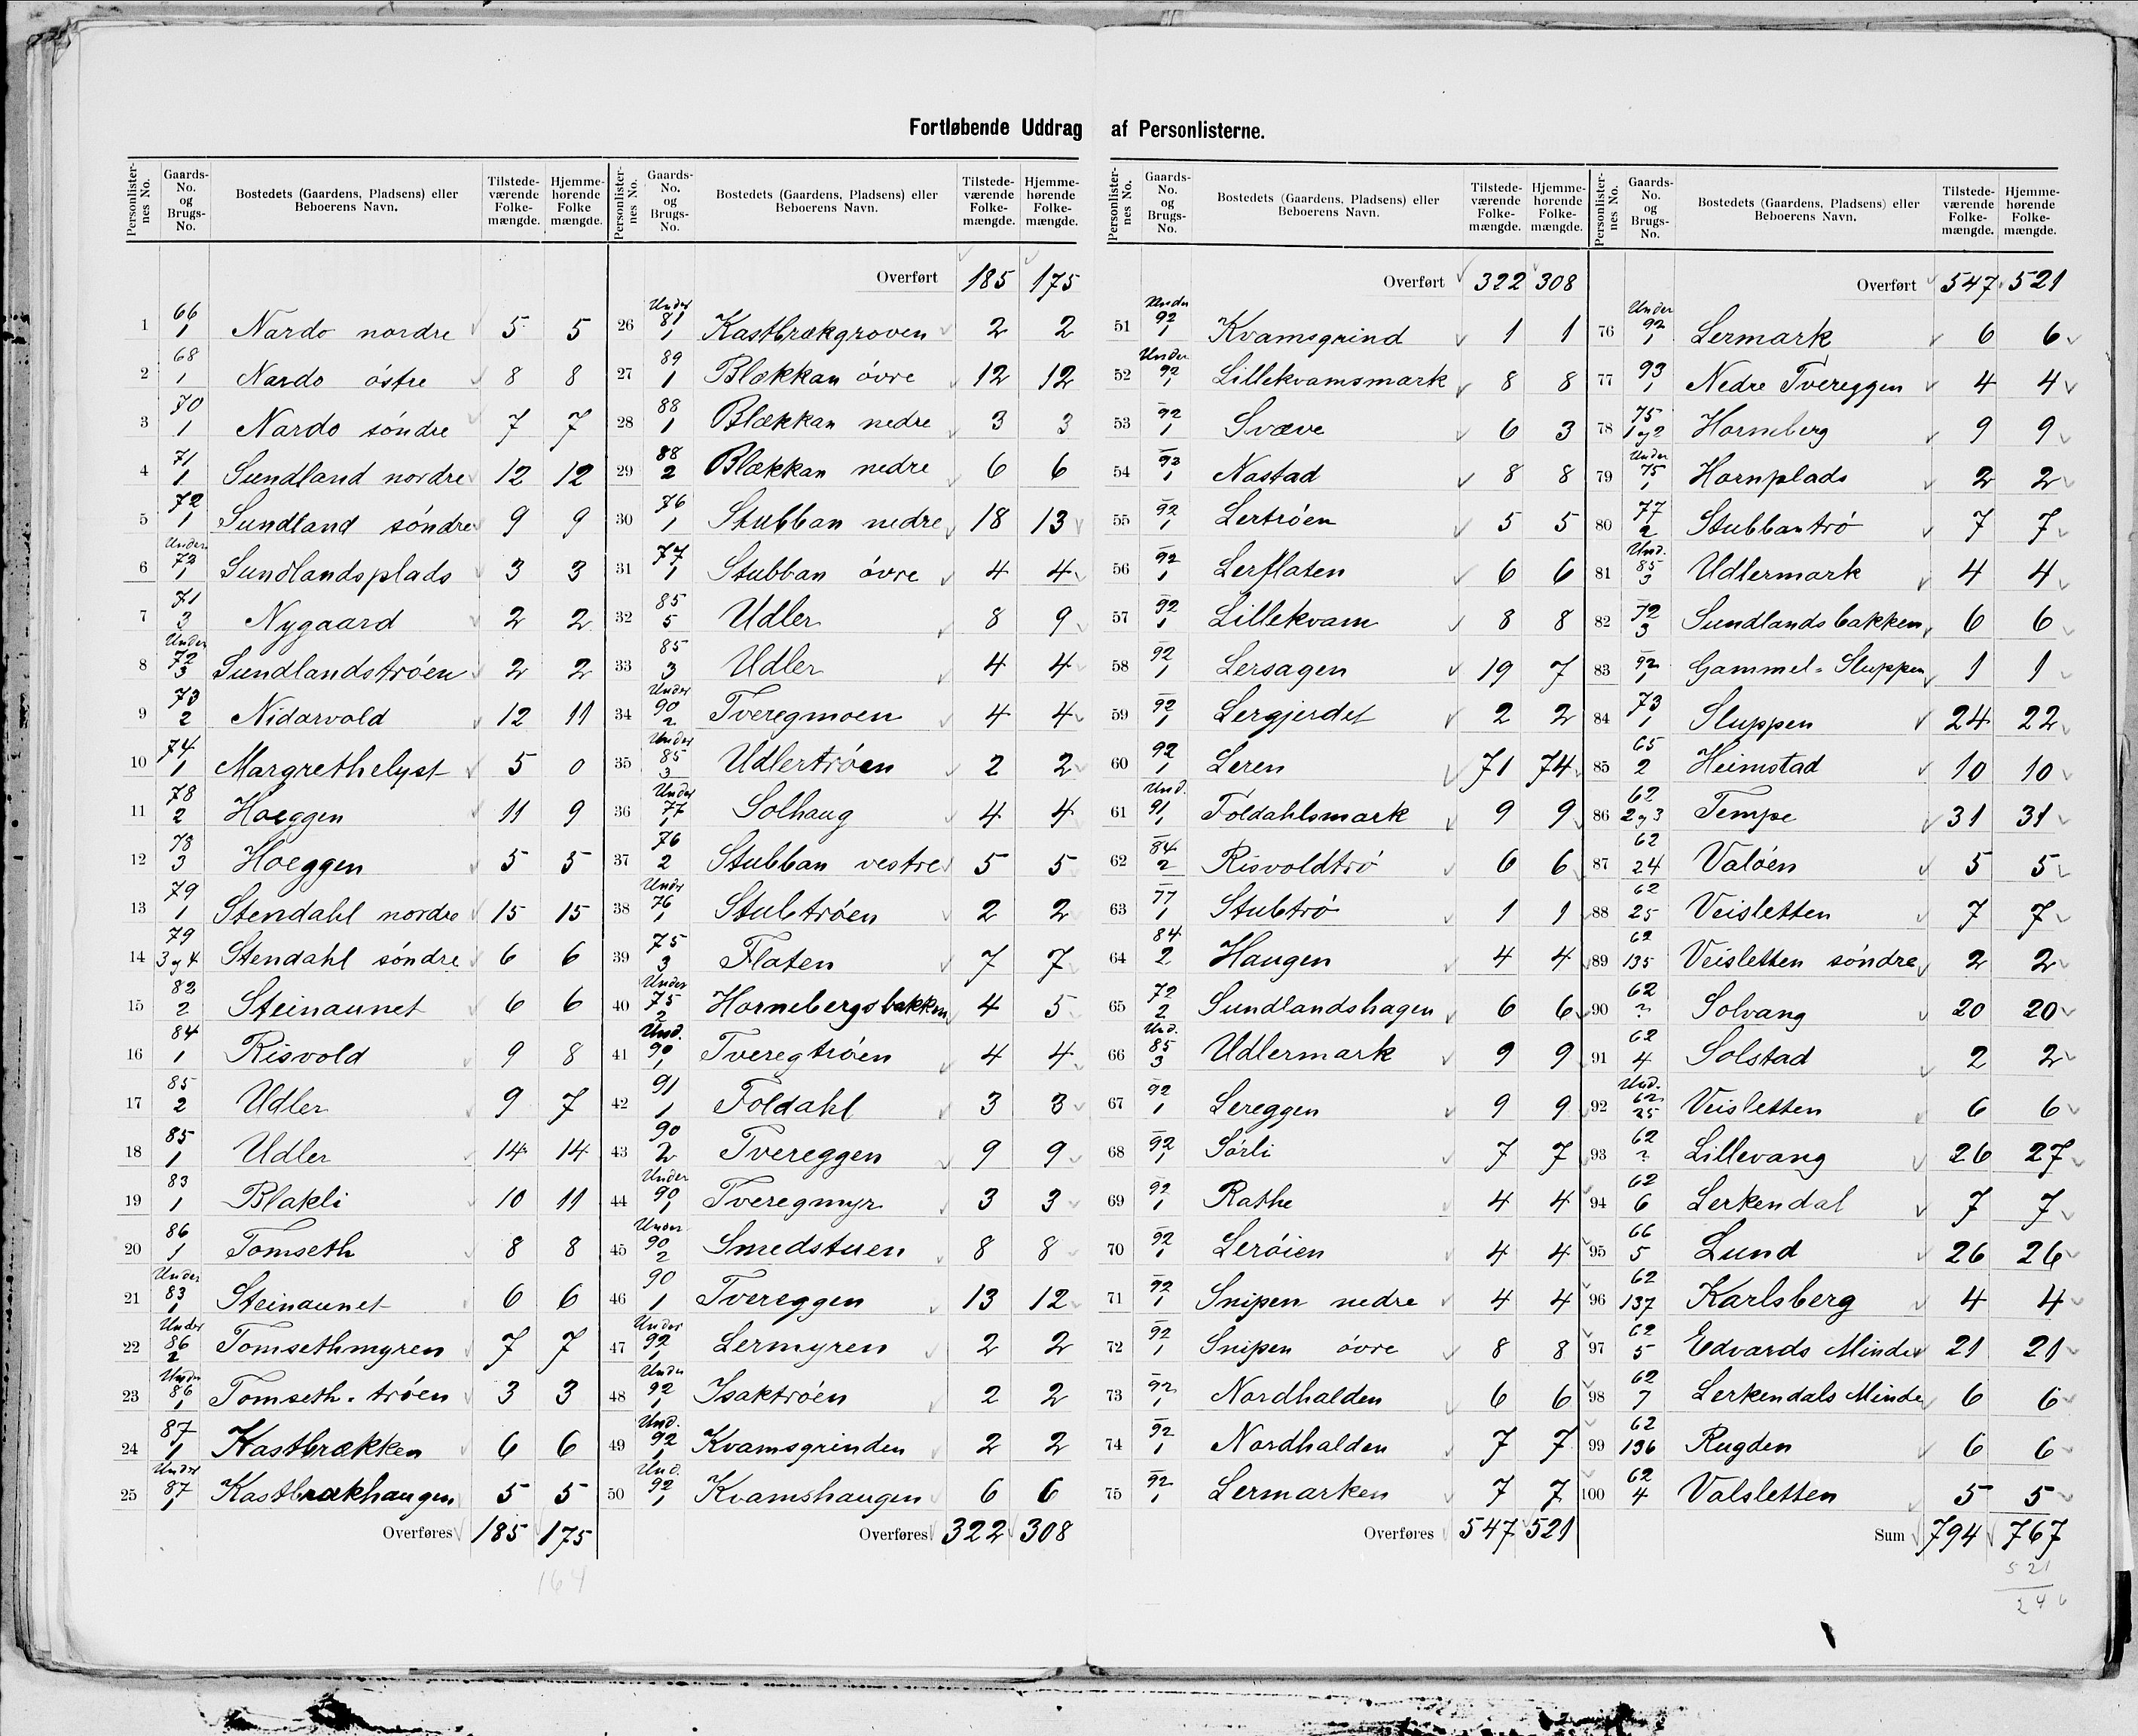 Fortløbende Uddrag af Personlisterne.
Personlisternes No. Gaards-No. og Brugs-No. Bostedets (Gaardens, Pladsens) eller Beboerens Navn. Tilstedeværende Folkemængde. Hjemmehørende Folkemængde.
1 66/1 Nardo nordre 5 5
2 68/1 Nardo östre 8 8
3 70/1 Nardo söndre 7 7
4 71/1 Sundland nordre 12 12
5 72/1 Sundland söndre 9 9
6 Under 72/1 Sundlandsplads 3 3
7 71/3 Nygaard 2 2
8 Under 72/3 Sundlandströen 2 2
9 73/2 Nidarvold 12 11
10 74/1 Margrethelyst 5 0
11 78/2 Hoeggen 11 9
12 78/3 Hoeggen 5 5
13 79/1 Stendahl nordre 15 15
14 79/3 g 4 Stendahl söndre 6 6
15 82/2 Steinaunet 6 6
16 84/1 Risvold 9 8
17 85/2 Udler 9 7
18 85/1 Udler 14 14
19 83/1 Blakli 10 11
20 86/1 Tomseth 8 8
21 Under 83/1 Steinaunet 6 6
22 Under 86/2 Tomsethmyren 7 7
23 Under 86/1 Tomseth-tröen 3 3
24 87/1 Kastbrækken 6 6
25 Under 87/1 Kastbrækhaugen 5 5
Overføres 185 175
164
Personlisternes No. Gaards-No. og Brugs-No. Bostedets (Gaardens, Pladsens) eller Beboerens Navn. Tilstedeværende Folkemængde. Hjemmehørende Folkemængde.
Overført 185 175
26 Under 81/1 Kastbrækgroven 2 2
27 89/1 Blækkan övre 12 12
28 88/1 Blækkan nedre 3 3
29 88/2 Blækkan nedre 6 6
30 76/1 Stubban nedre 18 13
31 77/1 Stubban övre 4 4
32 85/5 Udler 8 9
33 85/3 Udler 4 4
34 Under 90/2 Tveregmoen 4 4
35 Under 85/3 Udlertröen 2 2
36 Under 77/1 Solhaug 4 4
37 76/2 Stubban vestre 5 5
38 Under 76/1 Stubtröen 2 2
39 75/3 Flaten 7 7
40 Under 75/2 Hornebergsbakken 4 5
41 Und. 90/1 Tveregtröen 4 4
42 91/1 Foldahl 3 3
43 90/2 Tvereggen 9 9
44 Under 90/1 Tveregmyr 3 3
45 Under 90/2 Smedstuen 8 8
46 90/1 Tvereggen 13 12
47 Under 92/1 Lermyren 2 2
48 Under 92/1 Isaktröen 2 2
49 Und. 92/1 Kvamsgrinden 2 2
50 Und. 92/1 Kvamshaugen 6 6
Overføres 322 308
Personlisternes No. Gaards-No. og Brugs-No. Bostedets (Gaardens, Pladsens) eller Beboerens Navn. Tilstedeværende Folkemængde. Hjemmehørende Folkemængde.
Overført 322 308
51 Under 92/1 Kvamsgrind 1 1
52 Under 92/1 Lillekvamsmark 8 8
53 92/1 Svæve 6 3
54 92/1 Nastad 8 8
55 92/1 Lertröen 5 5
56 92/1 Lerflaten 6 6
57 92/1 Lillekvam 8 8
58 92/1 Lersagen 19 7
59 92/1 Lergjerdet 2 2
60 92/1 Leren 71 74
61 Und. 91/1 Foldahlsmark 9 9
62 84/2 Risvoldtrö 6 6
63 77/1 Stubtrö 1 1
64 84/2 Haugen 4 4
65 72/2 Sundlandshagen 6 6
66 Und. 85/3 Udlermark 9 9
67 92/1 Lereggen 9 9
68 92/1 Sörli 7 7
69 92/1 Rathe 4 4
70 92/1 Leröien 4 4
71 92/1 Snipen nedre 4 4
72 92/1 Snipen övre 8 8
73 92/1 Nordhalden 6 6
74 92/1 Nordhalden 7 7
75 92/1 Lermarken 7 7
Overføres 547 521
Personlisternes No. Gaards-No. og Brugs-No. Bostedets (Gaardens, Pladsens) eller Beboerens Navn. Tilstedeværende Folkemængde. Hjemmehørende Folkemængde.
Overført 547 521
76 Under 92/1 Lermark 6 6
77 93/1 Nedre Tvereggen 4 4
78 75/1 g 2 Horneberg 9 9
79 Under 75/1 Hornplads 2 2
80 77/2 Stubbantrö 7 7
81 Und. 85/3 Udlermark 4 4
82 72/3 Sundlandsbakken 6 6
83 92/1 Gammel-Sluppen 1 1
84 73/1 Sluppen 24 22
85 65/2 Heimstad 10 10
86 62/2 g 3 Tempe 31 31
87 62/24 Valöen 5 5
88 62/25 Veisletten 7 7
89 62/135 Veisletten söndre 2 2
90 62/? Solvang 20 20
91 62/4 Solstad 2 2
92 Und. 62/25 Veisletten 6 6
93 62/? Lillevang 26 27
94 62/6 Lerkendal 7 7
95 66/5 Lund 26 26
96 62/137 Karlsberg 4 4
97 62/5 Edvards Minde 21 21
98 62/7 Lerkendals Minde 6 6
99 62/136 Rugden 6 6
100 62/4 Valsletten 5 5
Sum 794 767
521
246